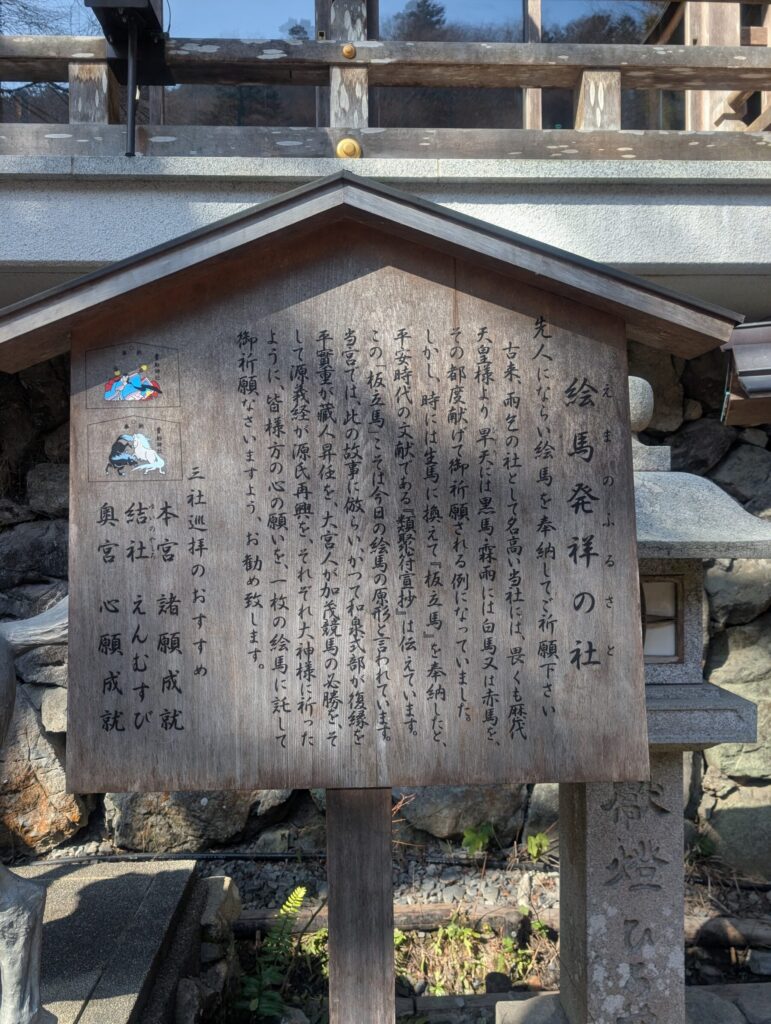 えまのふるさと
絵馬発祥の社
先人にならい絵馬を奉納してご祈願下さい
古来、雨乞の社として名高い当社には、畏くも歴代
天皇様より旱天には黒馬・霖雨には白馬又は赤馬を、
その都度献げて御祈願される例になっていました。
しかし、時には生馬に換えて『板立馬』を奉納したと、
平安時代の文献である『類聚符宣抄』は伝えています。
この『板立馬』こそは今日の絵馬の原形と言われています。
当宮では、此の故事に倣らい、かつて和泉式部が復縁を
平實重が蔵人昇任を、大宮人が加茂競馬の必勝を、そ
して源義経が源氏再興を、それぞれ大神様に祈った
ように、皆様方の心の願いを、一枚の絵馬に託して
御祈願なさいますよう、お勧め致します。
三社巡拝のおすすめ
本宮 諸願成就
結社 えんむすび
奥宮 心願成就
奉納
奉納
献燈